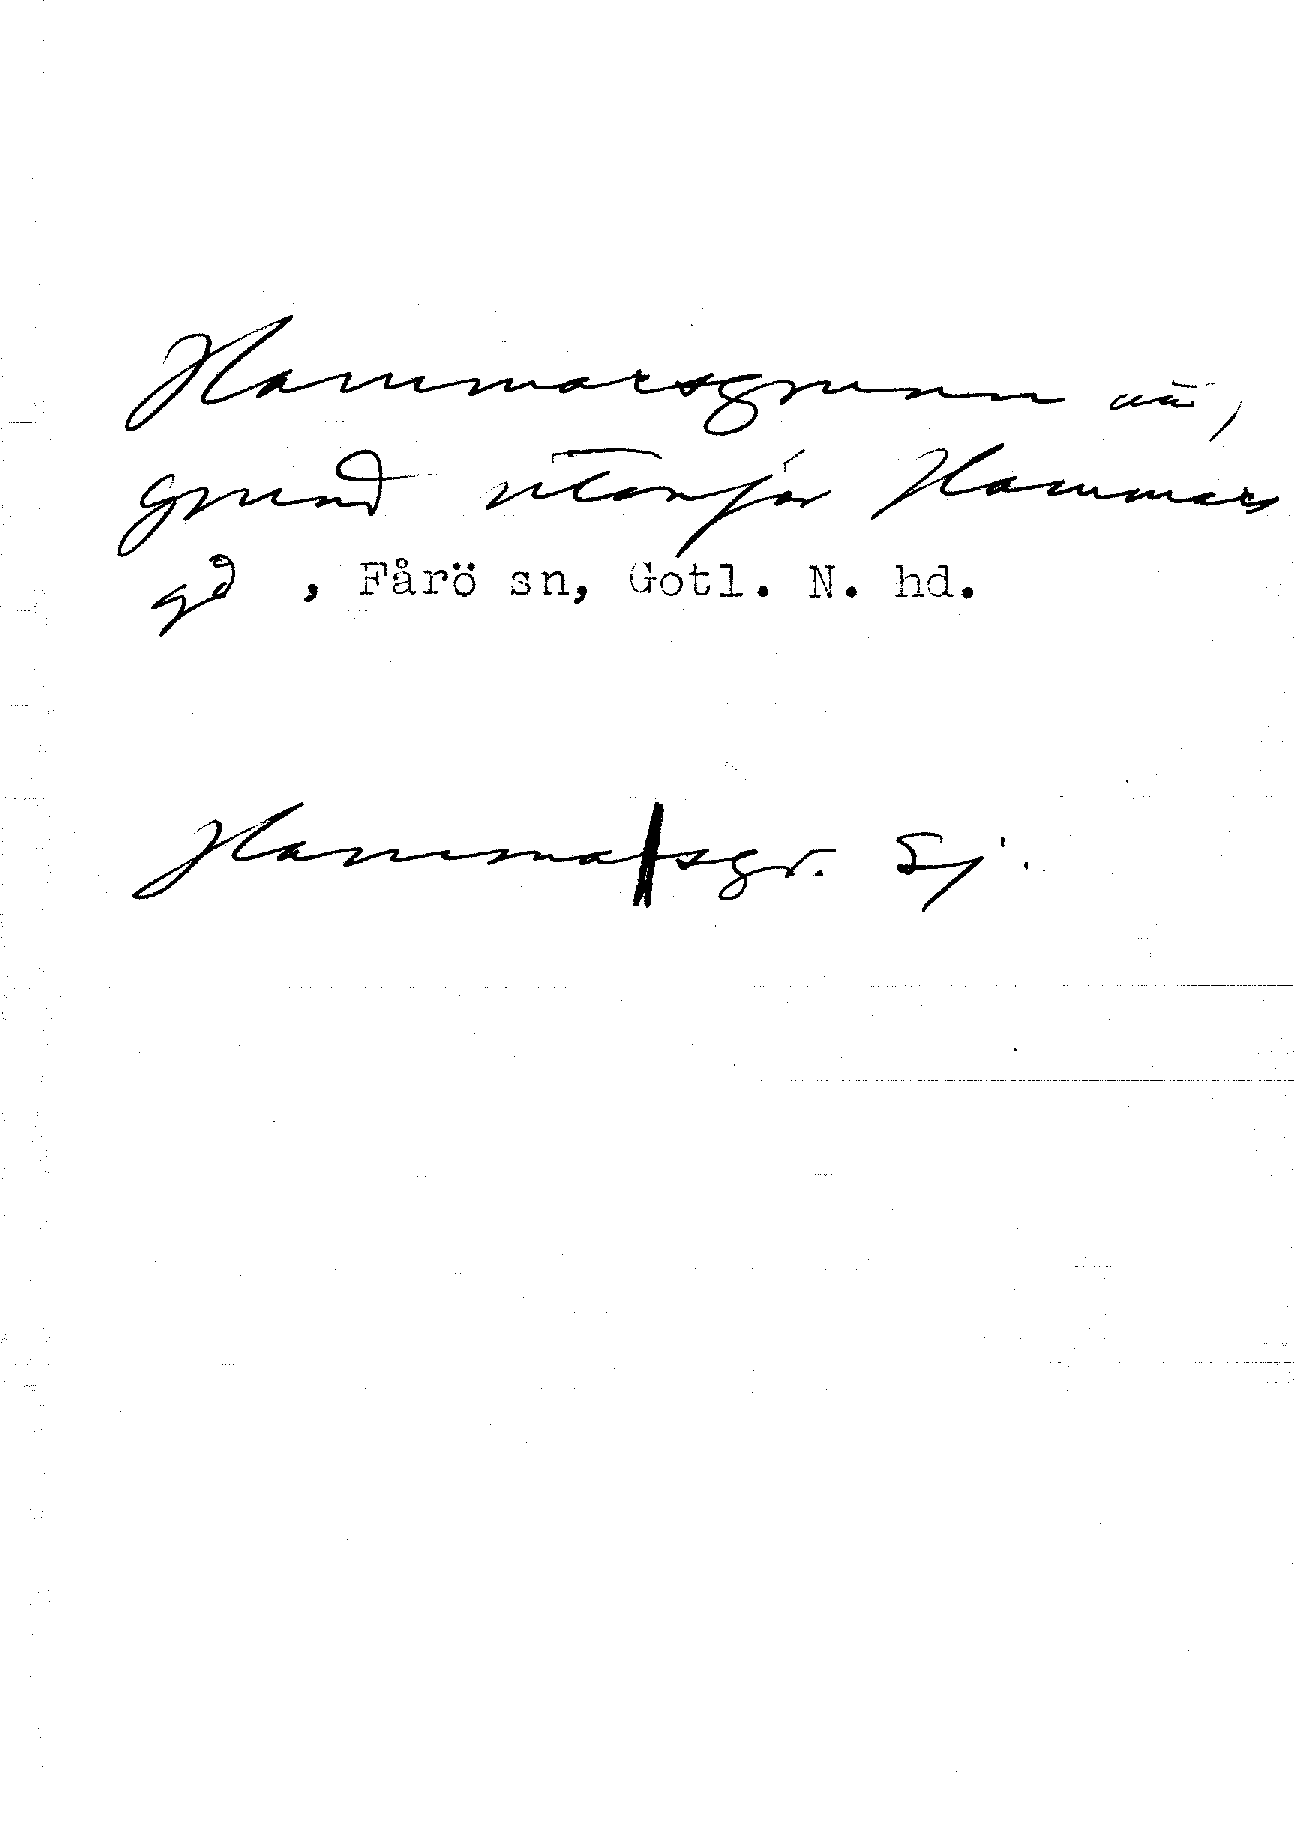 Hammarsgrunn
grund utanför Hammars
gd , Fårö sn, Gotl. N. hd.
Hammarsgr. Sj.